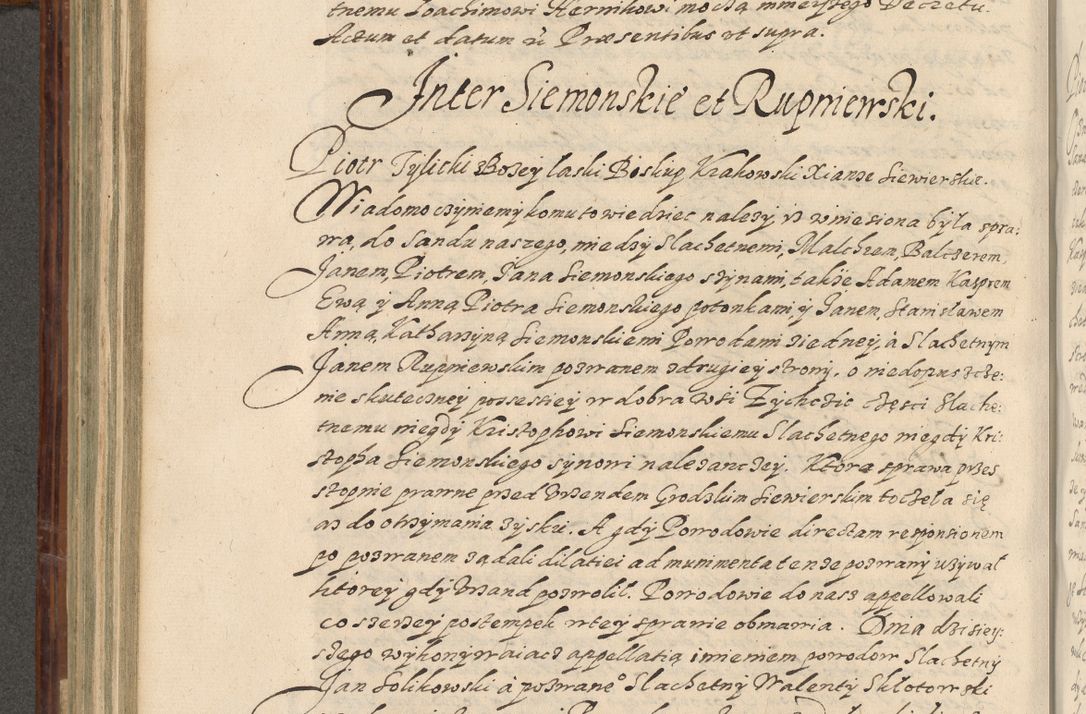 tnemu Joachimowi Hernikowi mocsą mnieyszego Decretu.
Actum et datum ut Præsentibus ut supra.
Inter Siemonskie et Rupniewski.
Piotr Tylicki z Bozey laski Biskup Krakowski Xianze Siewierskie.
Wiadomo czyniemy komu to wiedziec nalezy, iz wniesiona była spra:
wa, do Sandu naszego, miedzy Slachetnemi, Malchrem, Balczerem,
Janem, Piotrem, Jana Siemonskiego synami, także Adamem Kasprem
Ewą, y Anną Piotra Siemonskiego potomkami, y Janem, Stanisławem
Anną, Katharzyną Siemonskiemi Powodami z iedney, à Slachetnym
Janem Rupniewskim pozwanem z drugiey strony, o niedopuszcze:
nie skuteczney possessiey w dobra wsi Zychczic częsci Slache:
tnemu niegdy Kristophowi Siemonskiemu Slachetnego niegdy Kri:
stopha Siemonskiego synowi nalezanczey. Ktora sprawa przes
stopnie prawne przed Vrzendem Grodzkim Siewierskim toczeła się
az do otrzymania zysku. A gdy Powodowie directam responsionem
po pozwanem ządali dilatiei ad munimenta tenze pozwany uzywał
ktorey gdy Vrzand pozwolił. Powodowie do nasz appellowali
co szerzey postempek w tey sprawie obmawia. Dnia dzisiey:
szego wykonywaiacz appellatią imieniem powodow Slachetny
Jan Solikowski à pozwane⁰ Slachetny Walenty Skłotowski